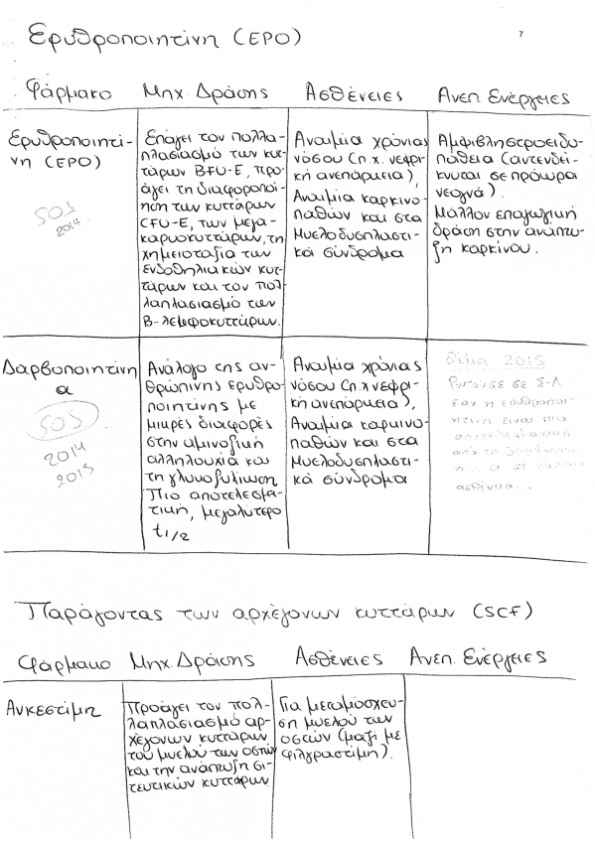 Ερυθροποιητίνη (EPO)
7
Φάρμακο Μηχ. Δράσης Ασθένειες Ανεπ. Ενέργειες
Ερυθροποιητί-
νη (EPO)
SOS
2014
Επάγει τον πολλα-
πλασιασμό των κυτ-
τάρων BFU-E, προ-
άγει τη διαφοροποί-
ηση των κυττάρων
CFU-E, των μεγα-
καρυοκυττάρων, τη
χημειοταξία των
ενδοθηλιακών κυτ-
τάρων και τον πολ-
λαπλασιασμό των
Β-λεμφοκυττάρων.
Αναιμία χρόνιας
νόσου (π.χ. νεφρι-
κή ανεπάρκεια),
Αναιμία καρκινο-
παθών και στα
Μυελοδυσπλαστι-
κά σύνδρομα
Αμφιβληστροειδο-
πάθεια (αντενδεί-
κνυται σε πρόωρα
νεογνά).
Μάλλον επαγωγική
δράση στην ανάπτυ-
ξη καρκίνου.
Δαρβοποιητίνη
α
SOS
2014
2015
Ανάλογο της αν-
θρώπινης ερυθρο-
ποιητίνης με
μικρές διαφορές
στην αμινοξική
αλληλουχία και
τη γλυκοζυλίωση
Πιο αποτελεσμα-
τική, μεγαλύτερο
t1/2
Αναιμία χρόνιας
νόσου (π.χ νεφρι-
κή ανεπάρκεια),
Αναιμία καρκινο-
παθών και στα
Μυελοδυσπλαστι-
κά σύνδρομα
Θέμα 2015
Ρωτούσε σε Σ-Λ
εαν η ερυθροποι-
ητίνη είναι πιο
αποτελεσματική
από τη
α σε
ασθένεια...
Παράγοντας των αρχέγονων κυττάρων (SCF)
Φάρμακο Μηχ. Δράσης Ασθένειες Ανεπ. Ενέργειες
Ανκεστίμη
Προάγει τον πολ-
λαπλασιασμό αρ-
χέγονων κυττάρων
του μυελού των οστών
και την ανάπτυξη σι-
τευτικών κυττάρων.
Για μεταμόσχευ-
ση μυελού των
οστών (μαζί με
φιλγραστίμη).